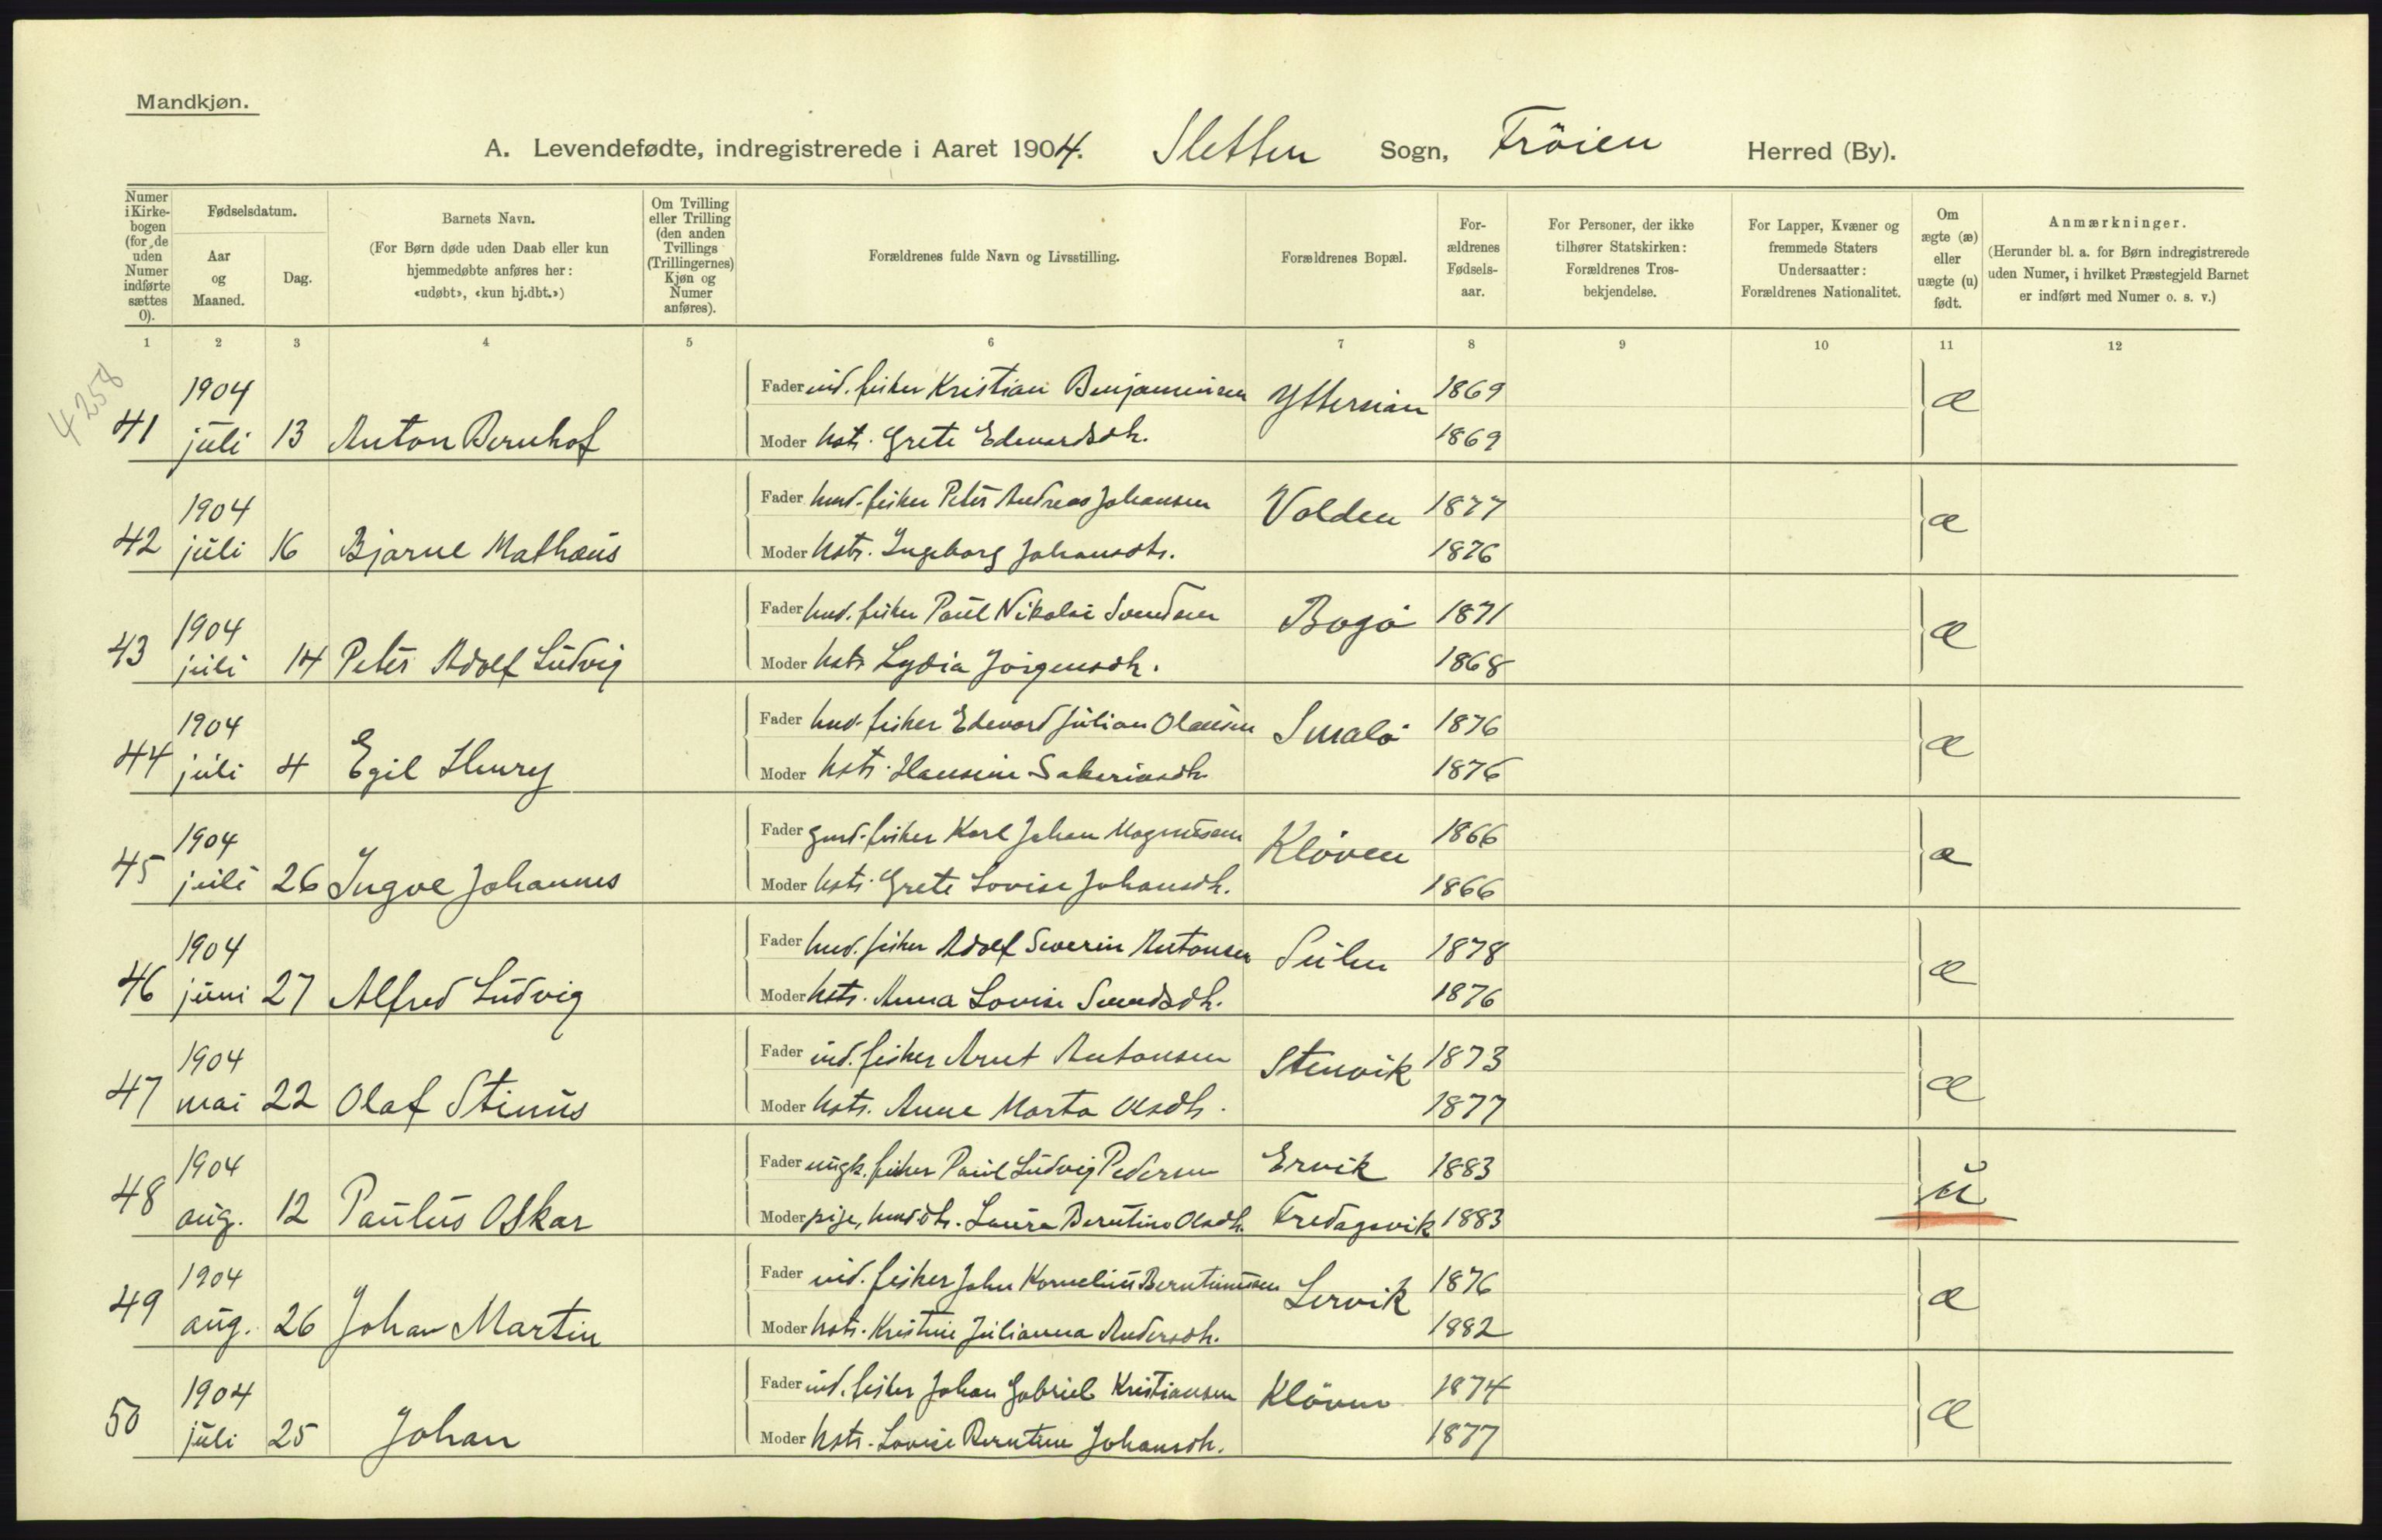 Mandkjøn.
A. Levendefødte, indregistrerede i Aaret 1904. Sletten Sogn, Fröien Herred (By).
Numer i Kirkebogen (for de uden Numer indførte sættes 0).
Fødselsdatum.
Aar og Maaned.
Dag.
Barnets Navn.
(For Børn døde uden Daab eller kun hjemmedøbte anføres her: «udøbt», «kun hj.dbt.»)
Om Tvilling eller Trilling (den anden Tvillings (Trillingernes) Kjøn og Numer anføres).
Forældrenes fulde Navn og Livsstilling.
Forældrenes Bopæl.
For-ældrenes Fødsels-aar.
For Personer, der ikke tilhører Statskirken: Forældrenes Tros-bekjendelse.
For Lapper, Kvæner og fremmede Staters Undersaatter: Forældrenes Nationalitet.
Om ægte (æ) eller uægte (u) født.
Anmærkninger.
(Herunder bl. a. for Børn indregistrerede uden Numer, i hvilket Præstegjeld Barnet er indført med Numer o. s. v.)
1 2 3 4 5 6 7 8 9 10 11 12
4258
1904 Fader ind. fisker Kristian Benjaminsen Yttersian 1869 æ
41 juli 13 Anton Bernhof Moder hstr. Grete Edvardsdtr. 1869
1904 Fader husm. fisker Peter Andreas Johansen Valden 1877 æ
42 juli 16 Bjarne Mathæus Moder hstr. Ingeborg Johansdtr. 1876
1904 Fader husm. fisker Paul Nikolai Svendsen Bogö 1871 æ
43 juli 14 Peter Adolf Ludvig Moder hstr. Lydia Jörgensdtr. 1868
1904 Fader husm. fisker Edevard Julian Olausen Smalö 1876 æ
44 juli 4 Egil Henry Moder hstr. Hansine Sakariasdtr. 1876
1904 Fader gmd. fisker Karl Johan Magnussen Klöven 1866 æ
45 juli 26 Ingve Johannes Moder hstr. Grete Lovise Johansdtr. 1866
1904 Fader husm. fisker Adolf Severin Antonsen Sulen 1878 æ
46 juni 27 Alfred Ludvig Moder hstr. Anna Lovise Svendsdtr. 1876
1904 Fader ind. fisker Arnt Antonsen Stenvik 1873 æ
47 mai 22 Olaf Stinus Moder hstr. Anne Marta Olsdtr. 1877
1904 Fader ungk. fisker Paul Ludvig Pedersen Ervik 1883 u
48 aug. 12 Paulus Oskar Moder pige, husmdtr. Laura Berntine Olsdtr. Fredagsvik 1883
1904 Fader ind. fisker John Kornelius Berntinussen Lervik 1876 æ
49 aug. 26 Johan Martin Moder hstr. Kristine Julianna Andersdtr. 1882
1904 Fader ind. fisker Johan Gabriel Kristiansen Klöven 1874 æ
50 juli 25 Johan Moder hstr. Lovise Berntine Johansdtr. 1877